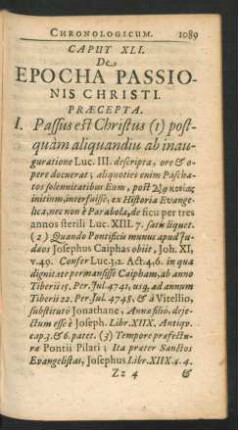 CHRONOLOGICUM. 1089
CAPUT XLI.
De
EPOCHA PASSIO-
NIS CHRISTI.
PRÆCEPTA.
I. Passus est Christus (1) post-
quàm aliquandiu ab inau-
guratione Luc. III. descripta, ore & o-
pere docuerat; aliquoties enim Pascha-
tos solennitatibus Eum, post
initium, interfuisse, ex Historia Evange-
lica, nec non è Parabola, de ficu per tres
annos sterili Luc. XIII. 7. satis liquet.
(2) Quando Pontificis munus apud Ju-
dæos Josephus Caiphas obiit, Joh. XI,
v. 49. Confer Luc. 3. 2. Act. 4, 6. in qua
dignitate permansisse Caipham, ab anno
Tiberii 15. Per. Jul. 4741, usq. ad annum
Tiberii 22. Per. Jul. 4748, & à Vitellio,
substituto Jonathane, Annæ filio, deje-
ctum esse è Joseph. Libr. XIIX. Antiqv.
cap. 3. & 6. patet. (3) Tempore præfectu-
ræ Pontii Pilati; Ita præter Sanctos
Evangelistas, Josephus Libr. XIIX. c. 4.
Zz 4 &